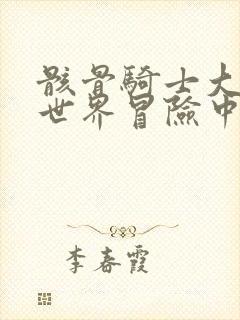 骸骨騎士大
世界冒險中
李春霞